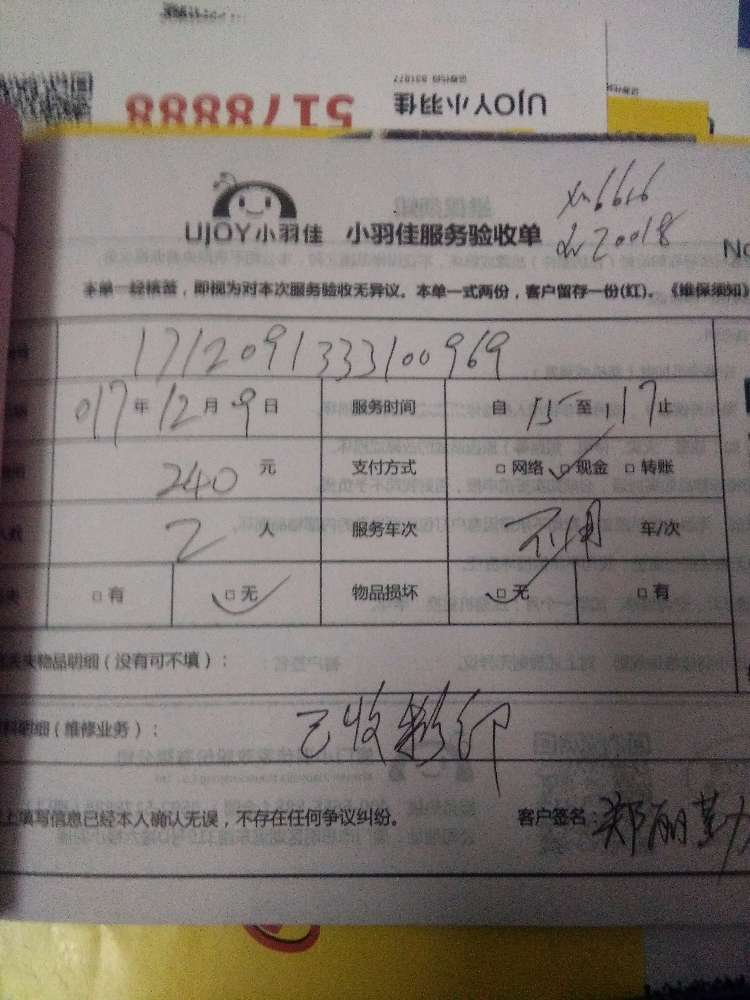 UJOY小羽佳
证券代码 831877
5178888
UJOY小羽佳 小羽佳服务验收单
No
本单一经核盖，即视为对本次服务验收无异议。本单一式两份，客户留存一份(红)。《维保须知》
1712091333100969
017年12月9日 服务时间 自15至17止
240元 支付方式 □网络 □现金 □转账
2人 服务车次 不用 年/次
□有 □无 物品损坏 □无 □有
失物品明细（没有可不填）：
料明细（维修业务）：
已收彩印
上填写信息已经本人确认无误，不存在任何争议纠纷。 客户签名：郑丽勤